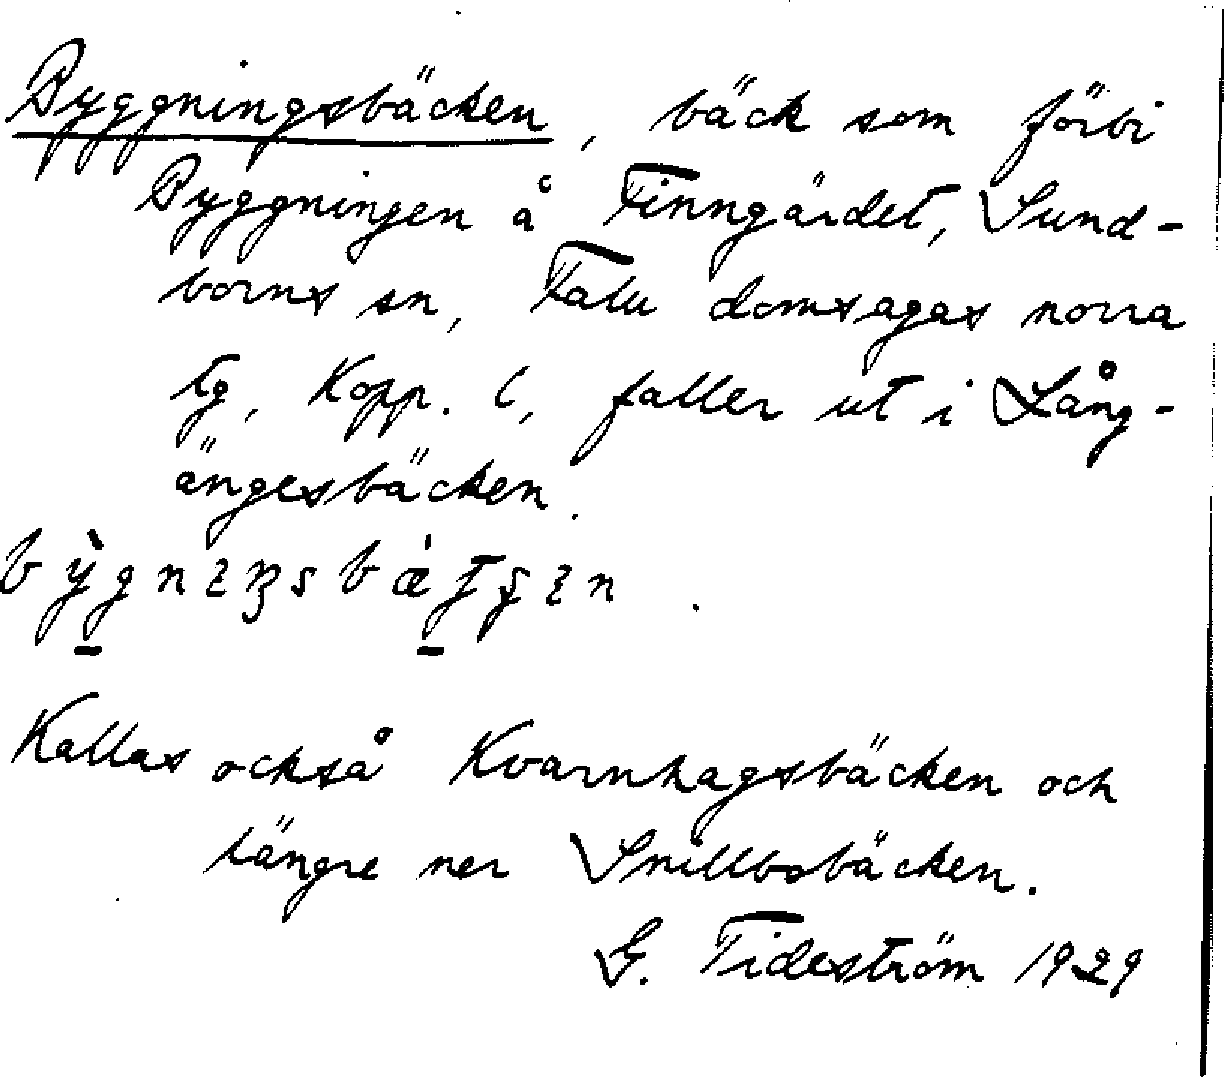 Byggningsbäcken, bäck som förbi
Byggningen å Finngärdet, Sund-
borns sn, Falu domsagas norra
tg, Kopp. l, faller ut i Lång-
ängesbäcken.
Kallas också Kvarnhagsbäcken och
längre ner Snillbobäcken.
G. Tideström 1929